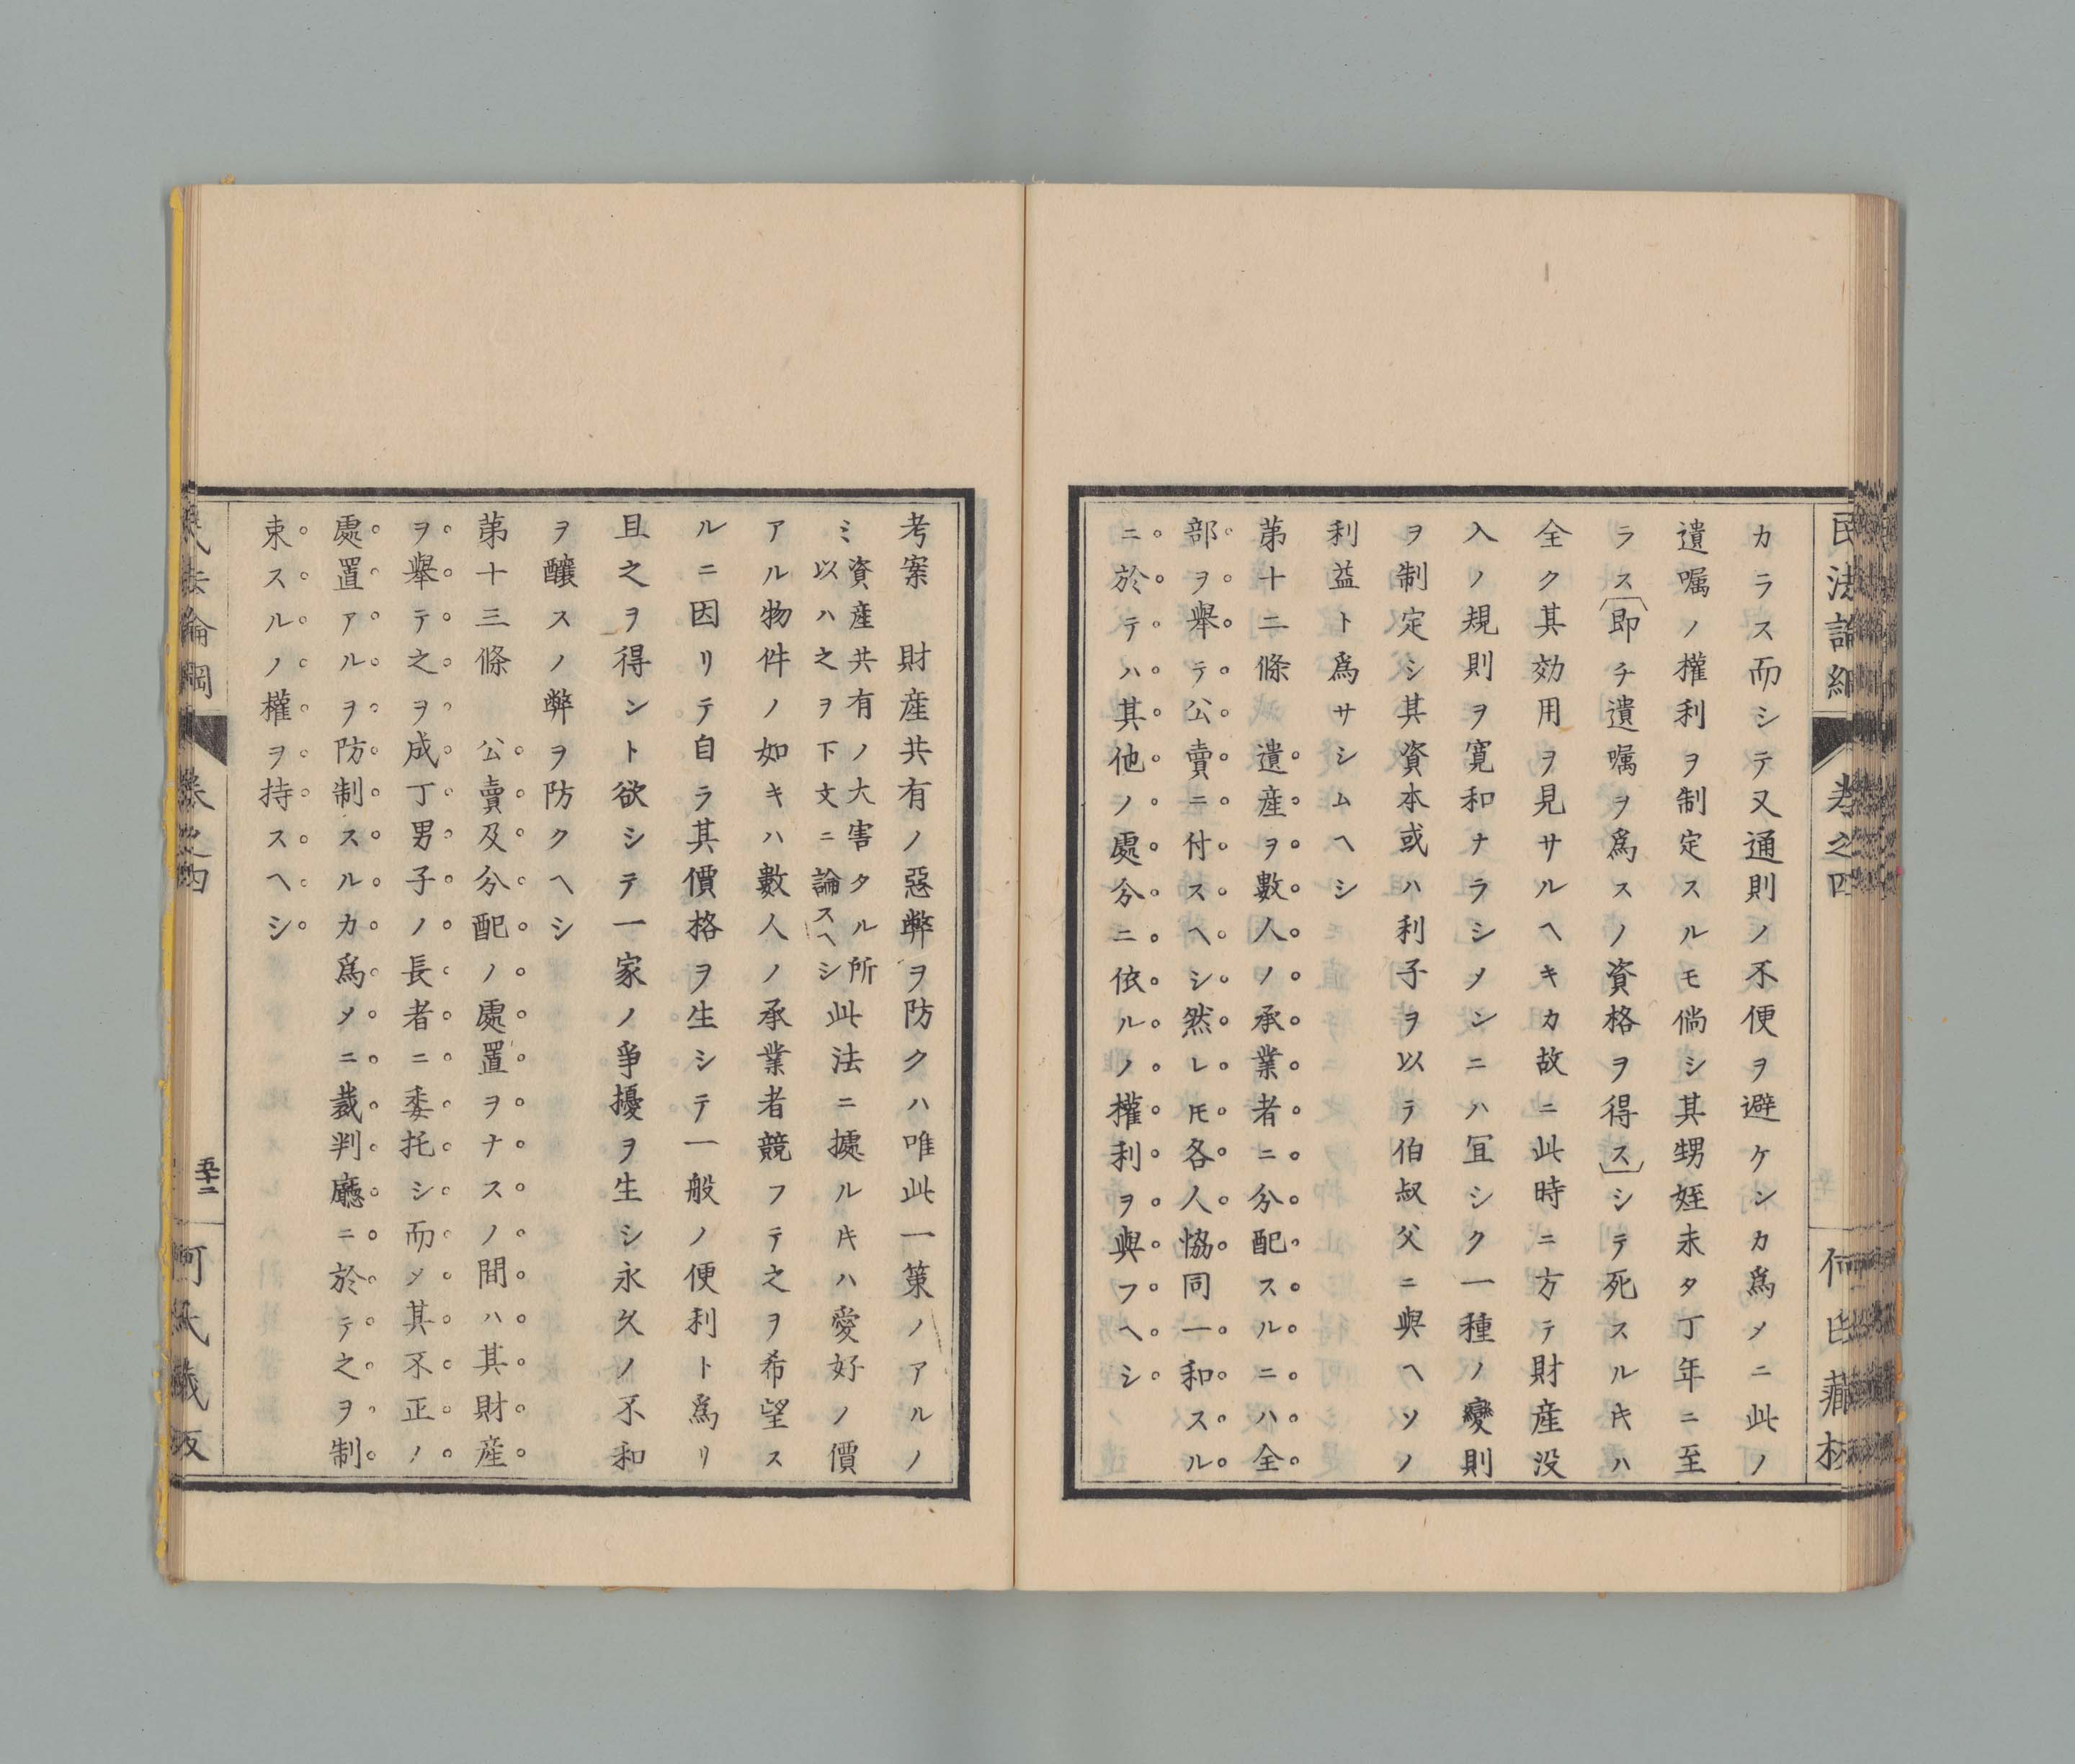 民法論綱
卷之四
何氏藏板
カラス而シテ又通則ノ不便ヲ避ケンカ爲メニ此ノ
遺嘱ノ權利ヲ制定スルモ倘シ其甥姪未タ丁年ニ至
ラス(即チ遺嘱ヲ爲スノ資格ヲ得ス)シテ死スルキハ
全ク其効用ヲ見サルヘキカ故ニ此時ニ方テ財産没
入ノ規則ヲ寬和ナラシメンニハ宜シク一種ノ變則
ヲ制定シ其資本或ハ利子ヲ以テ伯叔父ニ與ヘソノ
利益ト爲サシムヘシ
第十二條　遺産ヲ數人ノ承業者ニ分配スルニハ全
部ヲ擧テ公賣ニ付スヘシ然レ𪜈各人恊同一和スル
ニ於テハ其他ノ處分ニ依ルノ權利ヲ與フヘシ
考案　財産共有ノ惡弊ヲ防クハ唯此一策ノアルノ
ミ資産共有ノ大害タル所以ハ之ヲ下文ニ論スヘシ此法ニ據ルキハ愛好ノ價
アル物件ノ如キハ數人ノ承業者競フテ之ヲ希望ス
ルニ因リテ自ラ其價格ヲ生シテ一般ノ便利ト爲リ
且之ヲ得ント欲シテ一家ノ爭擾ヲ生シ永久ノ不和
ヲ釀スノ弊ヲ防クヘシ
第十三條　公賣及分配ノ處置ヲナスノ間ハ其財産
ヲ擧テ之ヲ成丁男子ノ長者ニ委托シ而メ其不正ノ
處置アルヲ防制スルカ爲メニ裁判廳ニ於テ之ヲ制
束スルノ權ヲ持スヘシ
民法論綱
卷之四
五十二
何氏藏板